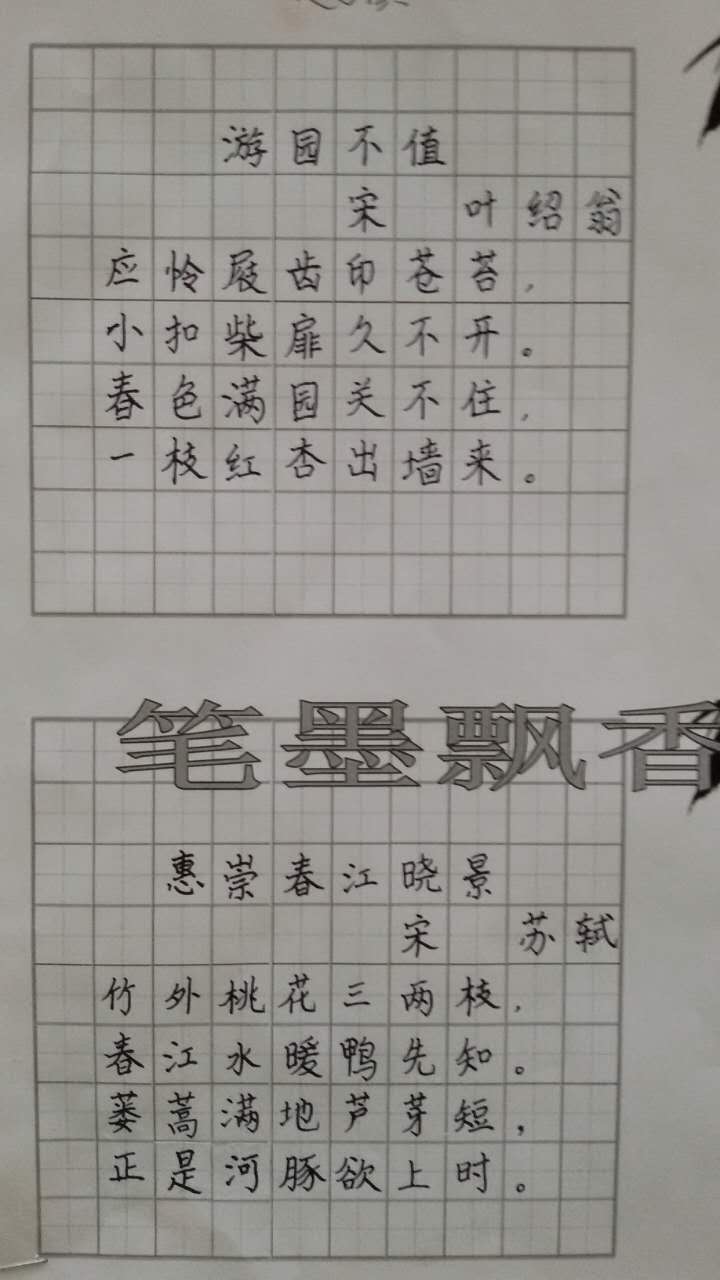 游园不值
宋 叶绍翁
应怜屐齿印苍苔，
小扣柴扉久不开。
春色满园关不住，
一枝红杏出墙来。
笔墨飘香
惠崇春江晓景
宋 苏轼
竹外桃花三两枝，
春江水暖鸭先知。
蒌蒿满地芦芽短，
正是河豚欲上时。